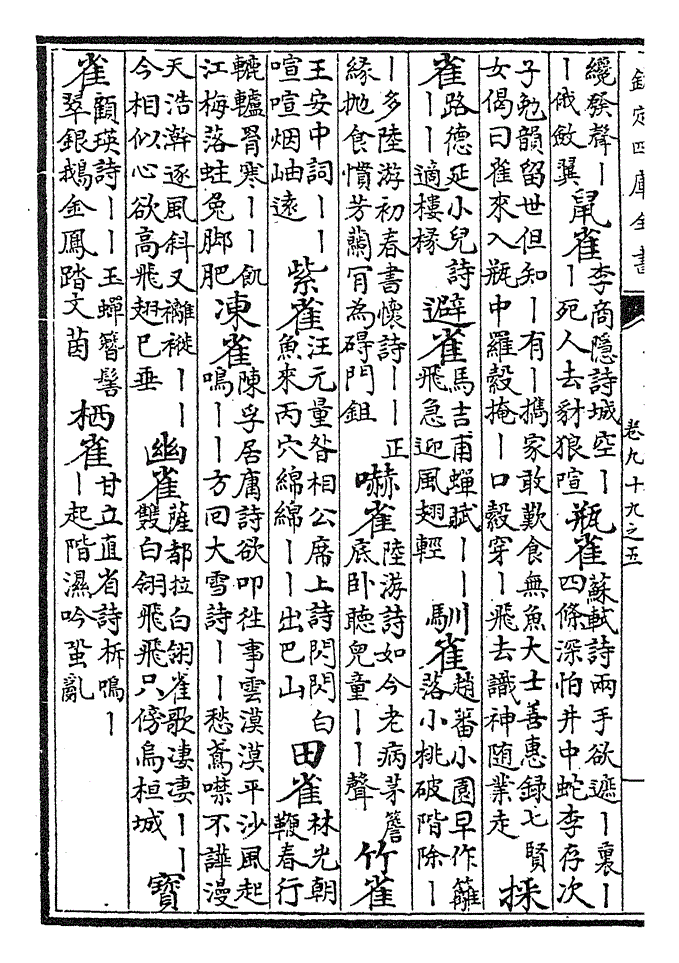 欽定四庫全書 卷九十九之五
纔發聲丨丨俄斂翼 鼠雀 李商隱詩城空丨丨死人去豺狼喧 瓶雀 蘇軾詩兩手欲遮丨裏丨四條深怕井中蛇李存次
子勉韻留世但知丨有丨攜家敢歎食無魚大士善惠録七賢女偈曰雀來入瓶中羅縠掩丨口縠穿丨飛去識神随業走 採
雀 路德延小兒詩丨丨適樓椽 避雀 馬吉甫蟬賦丨丨飛急迎風翅輕 馴雀 趙蕃小園早作籬落小桃破階除丨
丨多陸游初春書懷詩丨丨正緣抛食慣芳蘭肎為碍門鉏 嚇雀 陸游詩如今老病茅簷底卧聽兒童丨丨聲 竹雀
王安中詞丨丨喧喧烟岫遠 紫雀 汪元量昝相公席上詩閃閃白魚來丙穴綿綿丨丨出巴山 田雀 林光朝鞭春行
轆轤胃寒丨丨飢江梅落蛀兔脚肥 凍雀 陳孚居庸詩欲叩徃事雲漠漠平沙風起鳴丨丨方回大雪詩丨丨愁鳶噤不譁漫
天浩澣逐風斜又䙰褷丨丨今相似心欲高飛翅已垂 幽雀 薩都拉白翎雀歌凄凄丨丨雙白翎飛飛只傍烏桓城 寳
雀 顧瑛詩丨丨玉蟬簪髻翠銀鵝金鳳踏文茵 栖雀 甘立直省詩柝鳴丨丨起階濕吟蛩亂